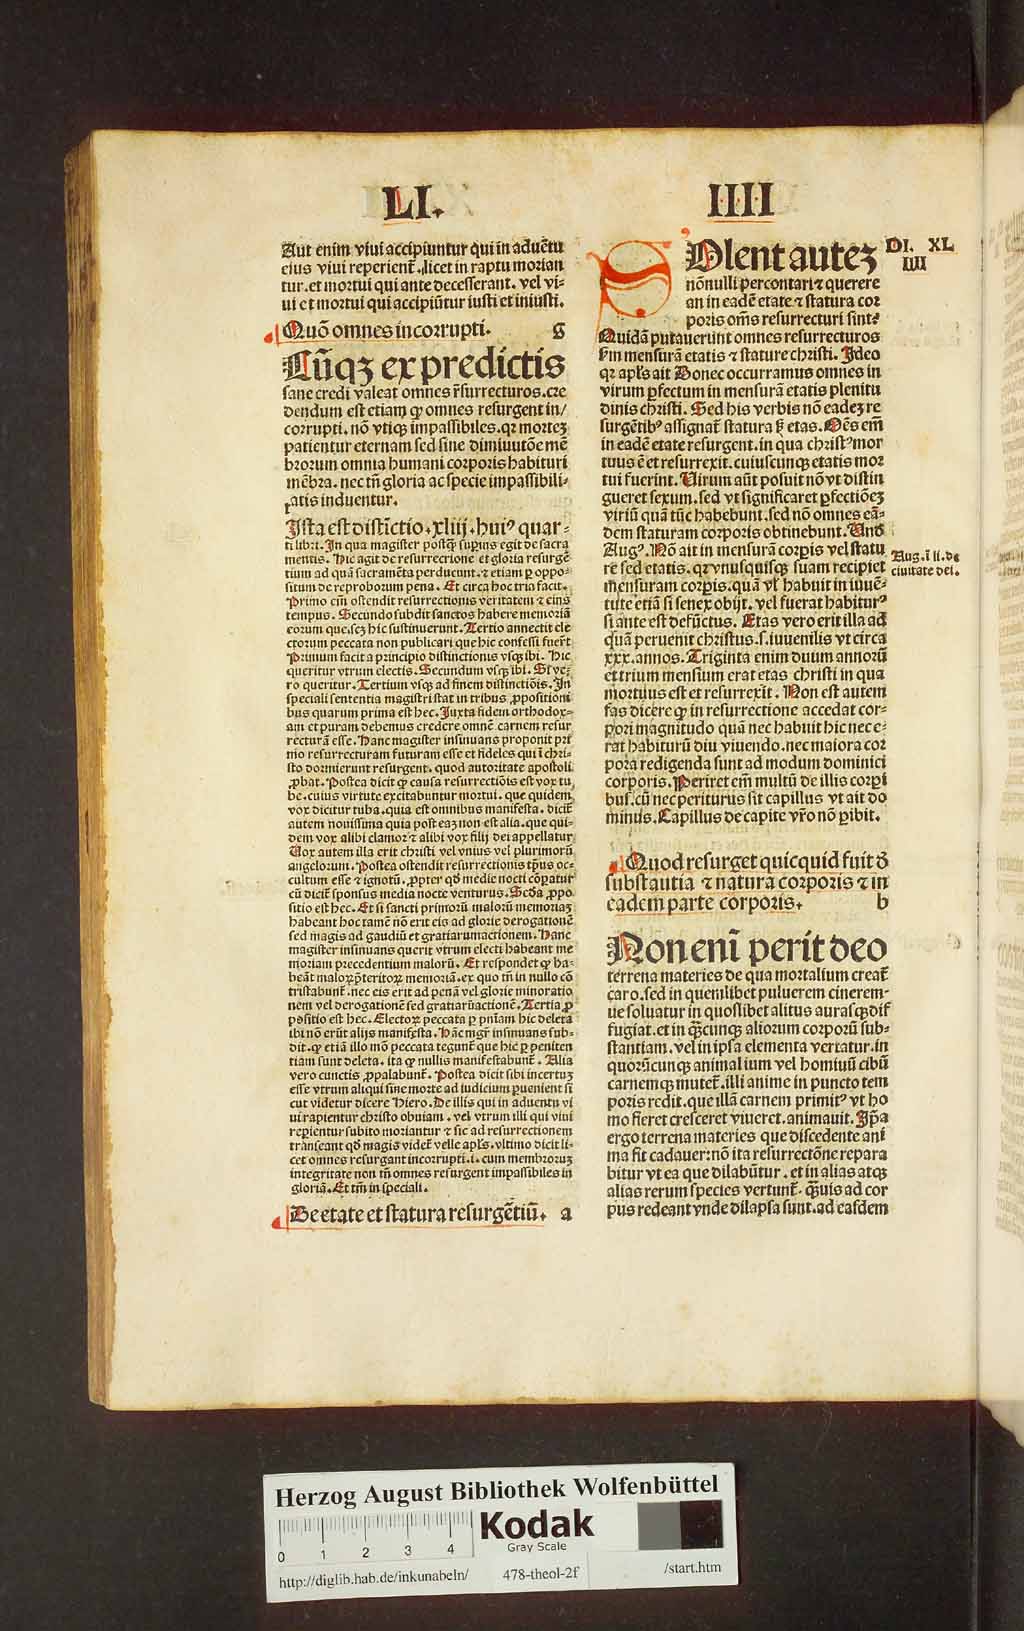 LI.
IIII
Aut enim viui accipiuntur qui in aduētu
eius viui reperient᷑. licet in raptu morian
tur. et mortui qui ante decesserant. vel vi-
ui et mortui qui accipiūtur iusti et iniusti.
Quō omnes incorrupti. g
Cūqꝫ ex predictis
sane credi valeat omnes r̄surrecturos. cre
dendum est etiam ꝙ omnes resurgent in/
corrupti. nō vtiqꝫ impassibiles. qꝛ morteꝫ
patientur eternam sed sine diminutōe mē
brorum omnia humani corporis habituri
mēbra. nec tn̄ gloria ac specie impassibili-
tatis induentur.
Ista est distīctio. xliij. huiꝰ quar-
ti libri. In qua magister postqꝫ̄ supius egit de sacra
mentis. hic agit de resurrectione et gloria resurgē
tium ad quā sacramēta perducunt. ⁊ etiam ꝑ oppo-
situm de reproborum pena. Et circa hoc tria facit.
Primo em̄ ostendit resurrectionis veritatem ⁊ eius
tempus. Secundo subdit sanctos habere memoriā
eorum que sez hic sustinuerunt. Tertio annectit ele
ctorum peccata non publicari que hic confessi fuer̄t
Primum facit a principio distinctionis vsqꝫ ibi. Hic
queritur vtrum electis. Secundum vsqꝫ ibi. Si ve-
ro queritur. Tertium vsqꝫ ad finem distinctiōis. In
speciali sententia magistri stat in tribus ꝓpositioni
bus quarum prima est hec. Iuxta fidem orthodox-
am et puram debemus credere omnē carnem resur
recturā esse. Hanc magister insinuans proponit pri
mo resurrecturam futuram esse et fideles qui ī chri-
sto dormierunt resurgent. quod autoritate apostoli
ꝓbat. Postea dicit ꝙ causa resurrectiōis est vox tu
be. cuius virtute excitabuntur mortui. que quidem
vox dicitur tuba. quia est omnibus manifesta. dicit᷑
autem nouissima quia post eaꝫ non est alia. que qui-
dem vox alibi clamor ⁊ alibi vox filij dei appellatur
Vox autem illa erit christi vel vnius vel plurimorū
angelorum. Postea ostendit resurrectionis tp̄us oc-
cultum esse ⁊ ignotū. ꝓpter qd̄ medie nocti cōparatur
cū dicit᷑ sponsus media nocte venturus. Secd̄a ꝓpo
sitio est hec. Et si sancti primorū malorū memoriaꝫ
habeant hoc tamē nō erit eis ad glorie derogationē
sed magis ad gaudiū et gratiarumactionem. Hanc
magister insinuans querit vtrum electi habeant me
moriam precedentium malorū. Et respondet ꝙ ha-
beāt maloꝝ p̄teritoꝝ memoriā. ex quo tn̄ in nullo cō
tristabunt᷑. nec eis erit ad penā vel glorie minoratio
nem vel derogationē sed gratiarūactionē. Tertia ꝓ
positio est hec. Electoꝝ peccata ꝑ pn̄iam hic deleta
ibi nō erūt alijs manifesta. Hāc mgr̄ insinuans sub-
dit. ꝙ etiā illo mō peccata tegunt᷑ que hic ꝑ peniten
tiam sunt deleta. ita ꝙ nullis manifestabunt᷑. Alia
vero cunctis ꝓpalabunt᷑. Postea dicit sibi incertuꝫ
esse vtrum aliqui sine morte ad iudicium ꝑuenient si
cut videtur dicere Hiero. De illis qui in aduentu vi
ui rapientur christo obuiam. vel vtrum illi qui viui
reꝑientur subito moriantur ⁊ sic ad resurrectionem
trāseant qd̄ magis videt᷑ velle apl̄s. vltimo dicit li-
cet omnes resurgant incorrupti. i. cum membroruꝫ
integritate non tn̄ omnes resurgent impassibiles in
gloriā. Et tm̄ in speciali.
De etate et statura resurgētiū. a
SOlent auteꝫ
nōnulli percontari ⁊ querere
an in eadē etate ⁊ statura cor
poris om̄s resurrecturi sint.
Quidā putauerūt omnes resurrecturos
scd̄m mensurā etatis ⁊ stature christi. Ideo
qꝛ apl̄s ait Donec occurramus omnes in
virum ꝑfectum in mensurā etatis plenitu
dinis christi. Sed his verbis nō eadeꝫ re
surgētibꝰ assignat᷑ statura sꝫ etas. Oēs em̄
in eadē etate resurgent. in qua christꝰ mor
tuus ē et resurrexit. cuiuscunqꝫ etatis mor
tui fuerint. Virum aūt posuit nō vt distin
gueret sexum. sed vt significaret ꝑfectiōeꝫ
viriū quā tūc habebunt. sed nō omnes eā-
dem staturam corporis obtinebunt. Vnd̄
Augꝰ. Nō ait in mensurā corꝑis vel statu
re sed etatis. qꝛ vnusquisqꝫ suam recipiet
mensuram corꝑis. quā vl̓ habuit in iuuē-
tute etiā si senex obijt. vel fuerat habiturꝰ
si ante est defūctus. Etas vero erit illa ad
quā peruenit christus. s. iuuenilis vt circa
xxx. annos. Triginta enim duum annorū
et trium mensium erat etas christi in qua
mortuus est et resurrexit. Non est autem
fas dicere ꝙ in resurrectione accedat cor-
pori magnitudo quā nec habuit hic nec e-
rat habiturū diu viuendo. nec maiora cor
pora redigenda sunt ad modum dominici
corporis. Periret em̄ multū de illis corꝑi
bus. cū nec periturus sit capillus vt ait do
minus. Capillus de capite vr̄o nō ꝑibit.
Quod resurget quicquid fuit d̄
substantia ⁊ natura corporis ⁊ in
eadem parte corporis. b
Non enī perit deo
terrena materies de qua mortalium creat᷑
caro. sed in quemlibet puluerem cinerem-
ue soluatur in quoslibet alitus aurasqꝫ dif
fugiat. et in qꝫ̄cunqꝫ aliorum corporū sub-
stantiam. vel in ipsa elementa vertatur. in
quorūcunqꝫ animalium vel hominū cibū
carnemqꝫ mutet᷑. illi anime in puncto tem
poris redit. que illā carnem primitꝰ vt ho
mo fieret cresceret viueret. animauit. Ip̄a
ergo terrena materies que discedente ani
ma fit cadauer: nō ita resurrectōne repara
bitur vt ea que dilabūtur. et in alias atqꝫ
alias rerum species vertunt᷑. qꝫ̄uis ad cor
pus redeant vnde dilapsa sunt. ad easdem
DI. XL
IIII
Aug. ī li. de
ciuitate dei.
Herzog August Bibliothek Wolfenbüttel
0 1 2 3 4
Kodak
Gray Scale
http://diglib.hab.de/inkunabeln/ 478-theol-2f /start.htm